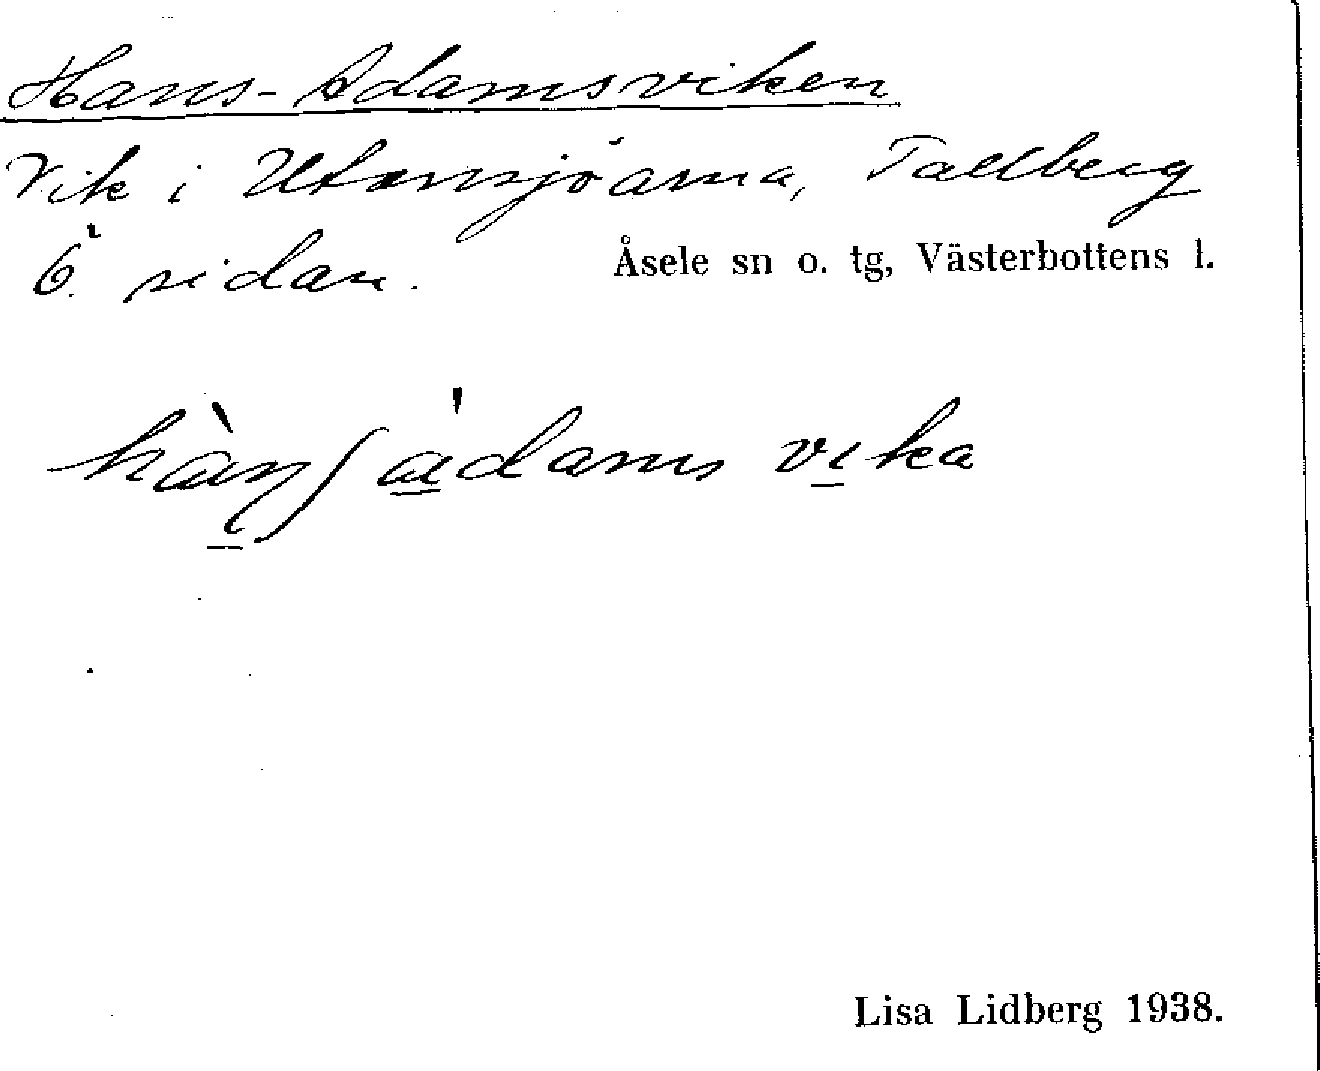 Hans-Adamsviken
Vik i Utersjöarna, Tallberg
ö. sidan.
Åsele sn o. tg, Västerbottens l.
vika
Lisa Lidberg 1938.